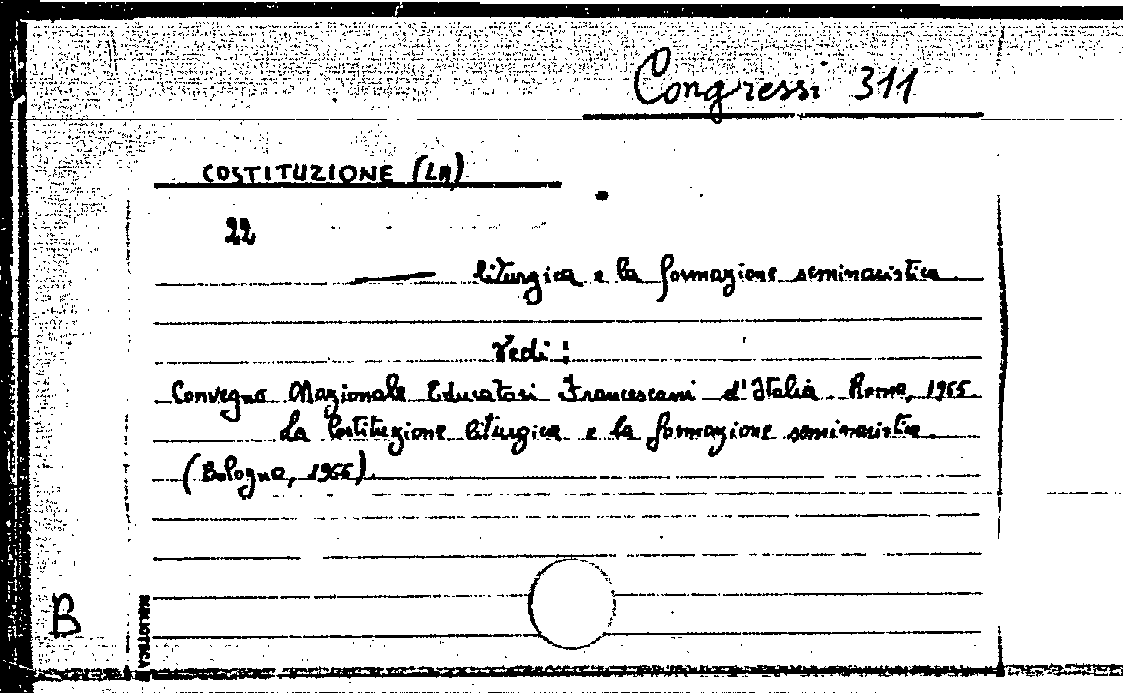 Congressi 311
COSTITUZIONE (LA)
22
liturgica e la formazione seminaristica.
Vedi:
Convegno Nazionale Educatori Francescani d'Italia. Roma, 1965.
La Costituzione liturgica e la formazione seminaristica.
(Bologna, 1966).
B
BIBLIOTECA